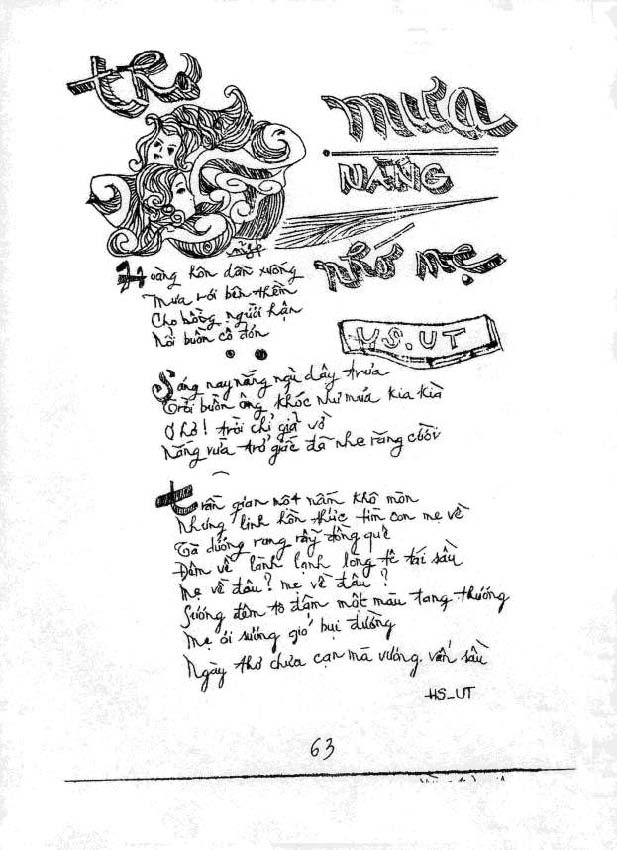 thơ
mưa
NẮNG
nhớ mẹ
HS.UT
Hoàng hôn dần xuống
Mưa rơi bên thềm
Cho bỗng người hận
Nỗi buồn cô đơn
Sáng nay nắng ngủ dậy trưa
Trời buồn ông khóc như mưa kia kìa
Ơ hờ! trời chỉ giả vờ
Nắng vừa trở giấc đã nhe răng cười
Trần gian một nấm khô mòn
Nhưng linh hồn thức tìm con mẹ về
Tà dương rưng rẫy đồng quê
Đêm về lành lạnh long tê tái sầu
Mẹ về đâu? mẹ về đâu?
Sương đêm tô đậm một màu tang thương
Mẹ ơi sương gió bụi đường
Ngày thơ chưa cạn mà vương vấn sầu
HS_UT
63